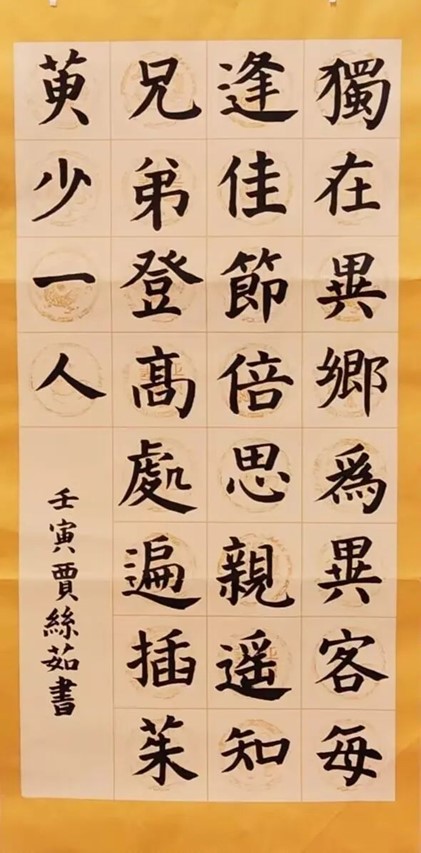 獨在異鄉爲異客每
逢佳節倍思親遥知
兄弟登髙處遍插茱
萸少一人
壬寅賈絲茹書